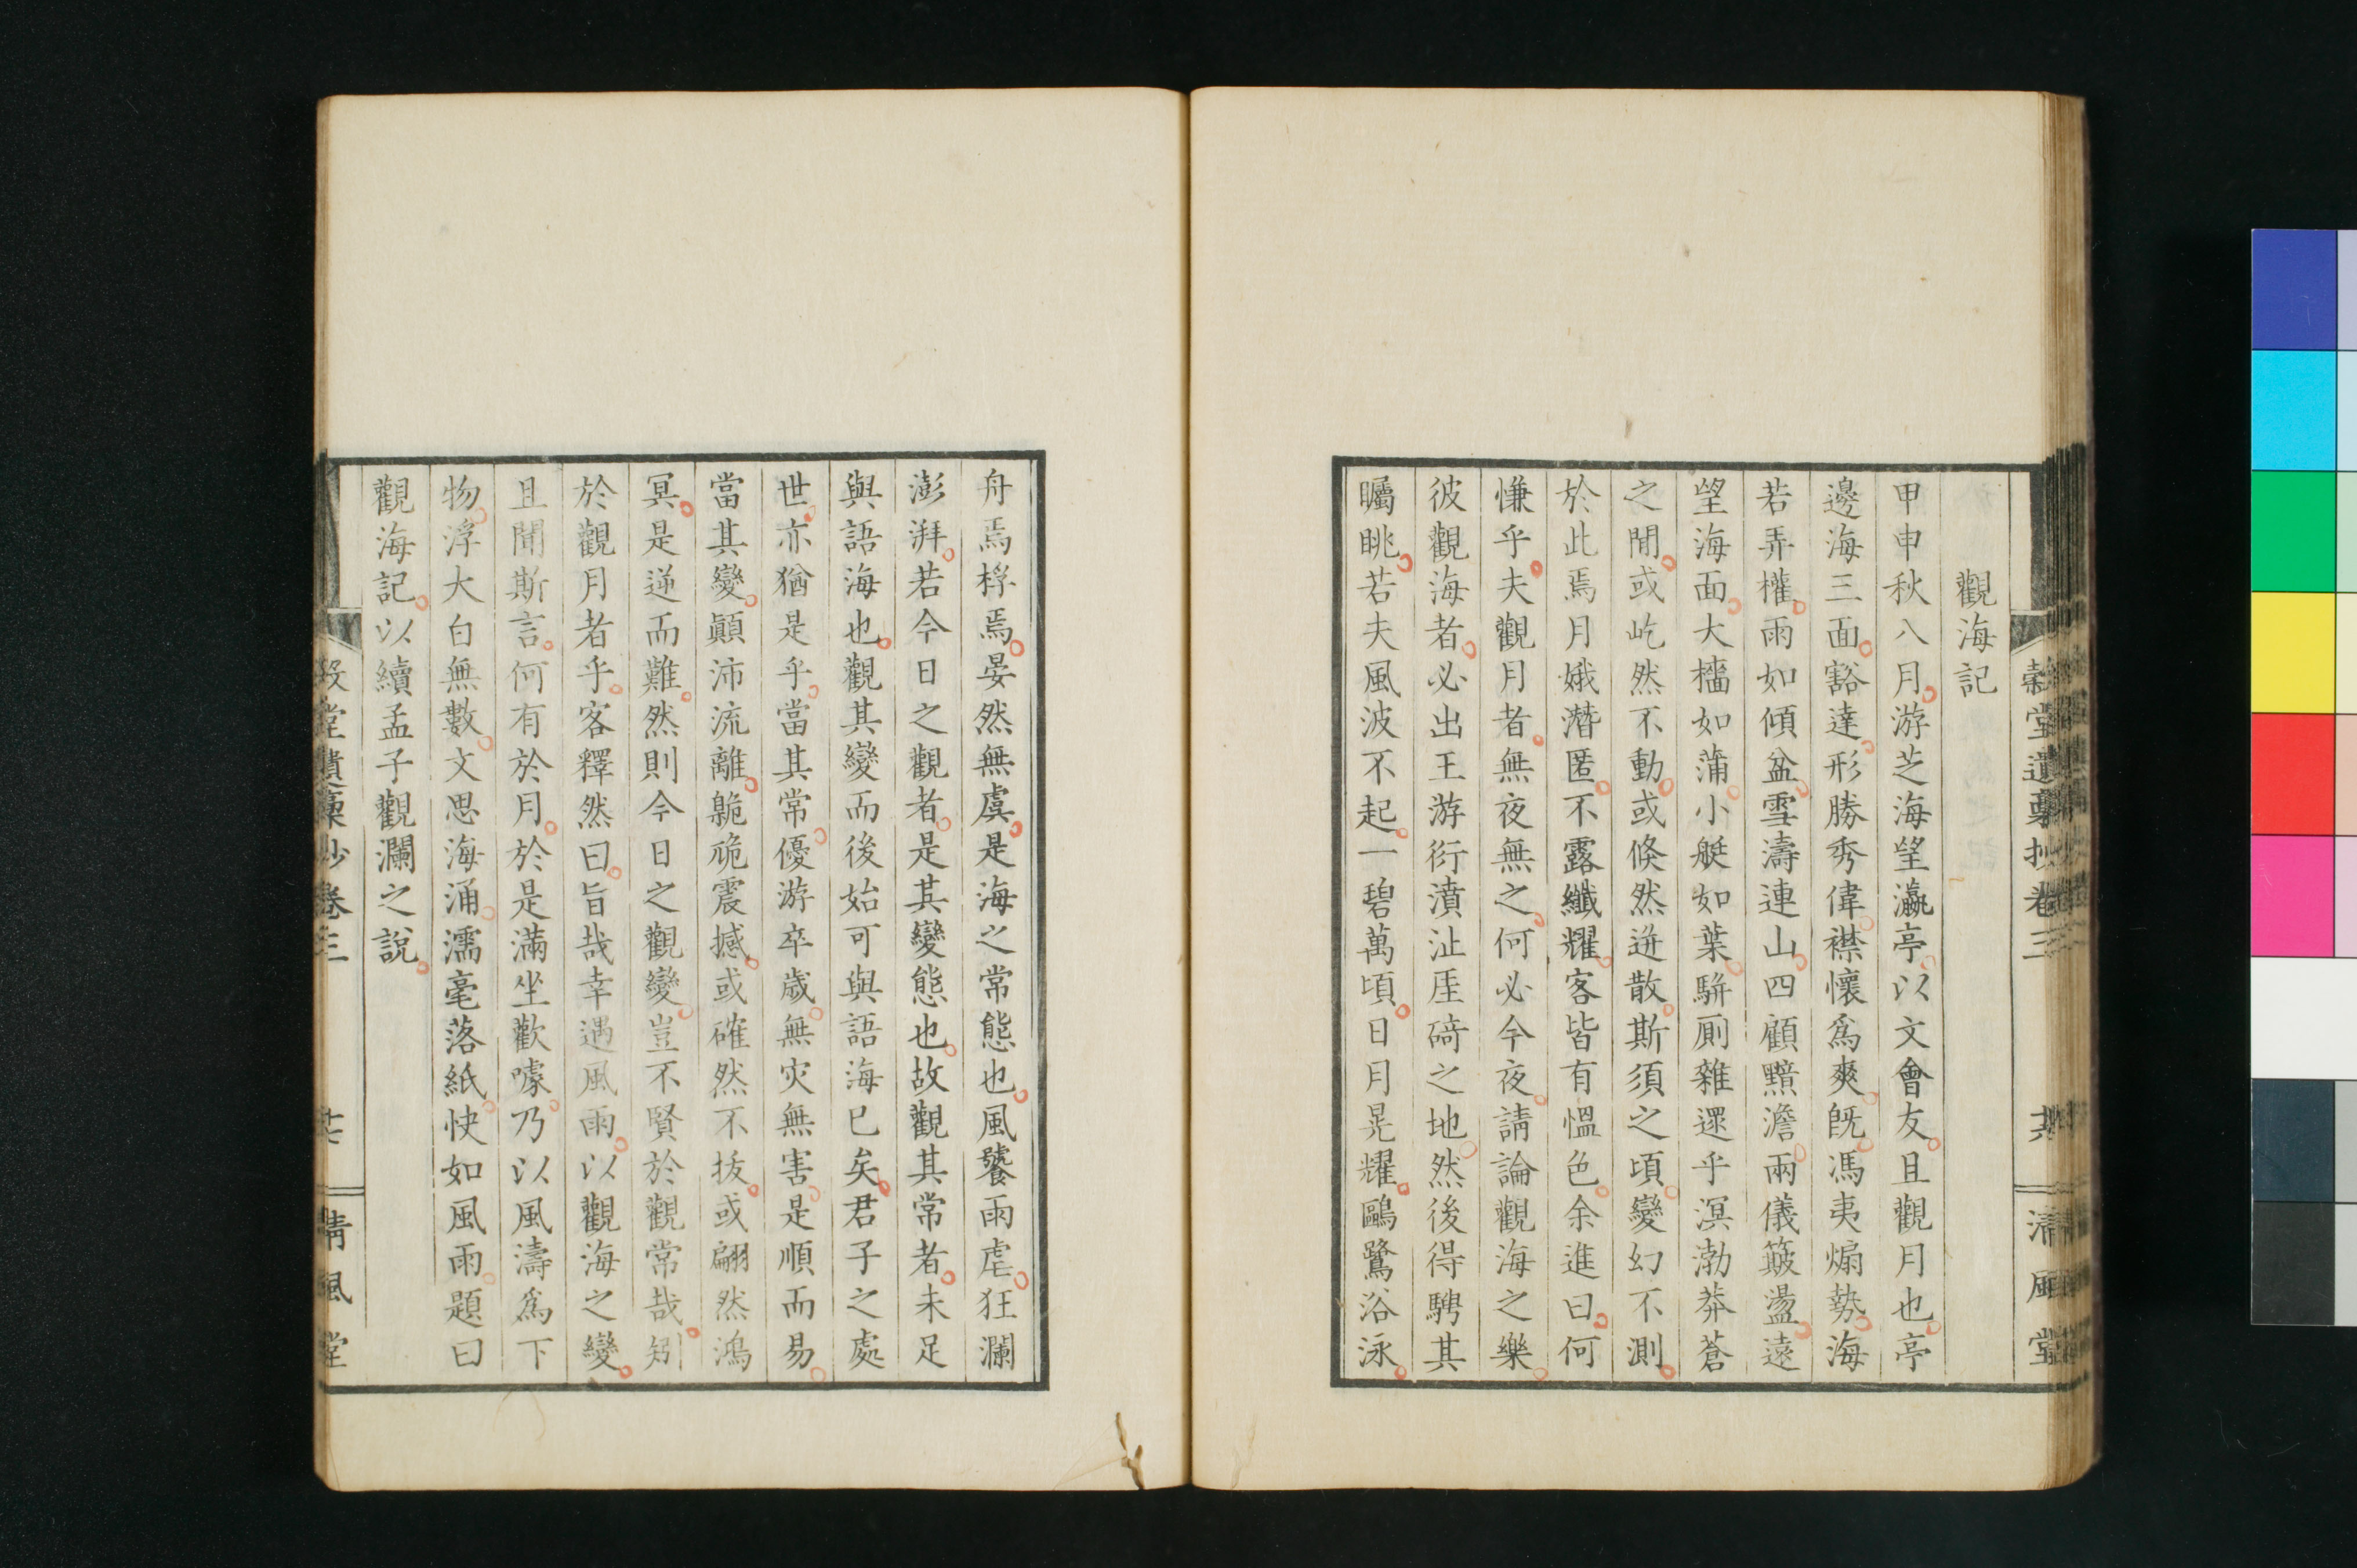 觀海記
甲申秋八月游芝海望瀛亭以文會友且觀月也亭
邊海三面豁達形勝秀偉襟懷爲爽旣馮夷煽勢海
若弄權雨如傾盆雪濤連山四顧黯澹兩儀簸盪遠
望海面大檣如蒲小艇如葉駢厠雜遝乎溟渤莽蒼
之閒或屹然不動或倏然迸散斯須之頃變幻不測
於此焉月娥潛匿不露纖耀客皆有慍色余進曰何
慊乎夫觀月者無夜無之何必今夜請論觀海之樂
彼觀海者必出王游衍濆沚厓碕之地然後得騁其
矚眺若夫風波不起一碧萬頃日月晃耀鷗鷺浴泳
舟焉桴焉晏然無虞是海之常態也風饕雨虐狂瀾
澎湃若今日之觀者是其變態也故觀其常者未足
與語海也觀其變而後始可與語海已矣君子之處
世亦猶是乎當其常優游卒歲無灾無害是順而易
當其變顚沛流離臲卼震撼或確然不拔或翩然鴻
冥是逆而難然則今日之觀變豈不賢於觀常哉矧
於觀月者乎客釋然曰旨哉幸遇風雨以觀海之變
且聞斯言何有於月於是滿坐歡噱乃以風濤爲下
物浮大白無數文思海涌濡毫落紙快如風雨題曰
觀海記以續孟子觀瀾之說
穀堂遺稾抄卷三
淸風堂